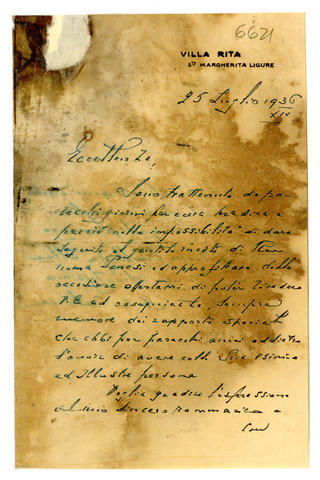 6621
VILLA RITA
Sta MARGHERITA LIGURE
25 Luglio 1936
XIV
Eccellenza,
Sono trattenuto da parecchi
giorni per cura medica e
perciò nella impossibilità di dare
seguito al gentile invito di
Perosi ed approfittare della
occasione offertami di poter
S. E. ed ossequiarla, sempre
memore dei rapporti speciali
che ebbi per parecchi anni addietro
l'onore di avere colla Sua esimia
ed Illustre persona
Voglia gradire l'espressione
del mio sincero rammarico e
con